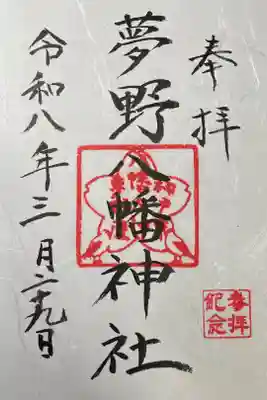 奉拝
夢野八幡神社
令和八年三月二十九日
参拝
紀念